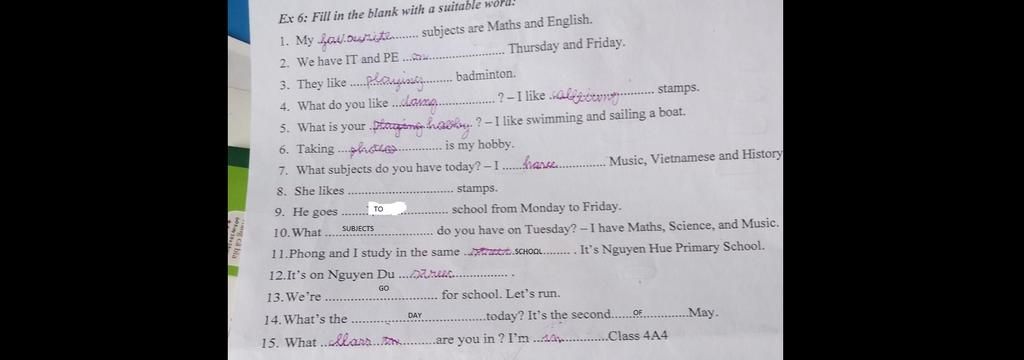 Ex 6: Fill in the blank with a suitable word:
1. My favourite subjects are Maths and English.
2. We have IT and PE on Thursday and Friday.
3. They like playing badminton.
4. What do you like doing ? – I like collecting stamps.
5. What is your playing hobby ? – I like swimming and sailing a boat.
6. Taking photos is my hobby.
7. What subjects do you have today? – I have Music, Vietnamese and History
8. She likes .............................. stamps.
9. He goes TO school from Monday to Friday.
10. What SUBJECTS do you have on Tuesday? – I have Maths, Science, and Music.
11. Phong and I study in the same street SCHOOL . It's Nguyen Hue Primary School.
12. It's on Nguyen Du street .
13. We're GO for school. Let's run.
14. What's the DAY today? It's the second OF May.
15. What class are you in ? I'm in Class 4A4